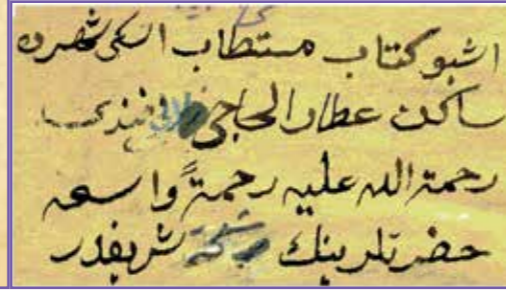 اشبو كتاب مستطاب اسكى شهرده
ساكن عطار الحاجى افندى
رحمة الله عليه رحمةً واسعه
حضرتلرينك شريفدر